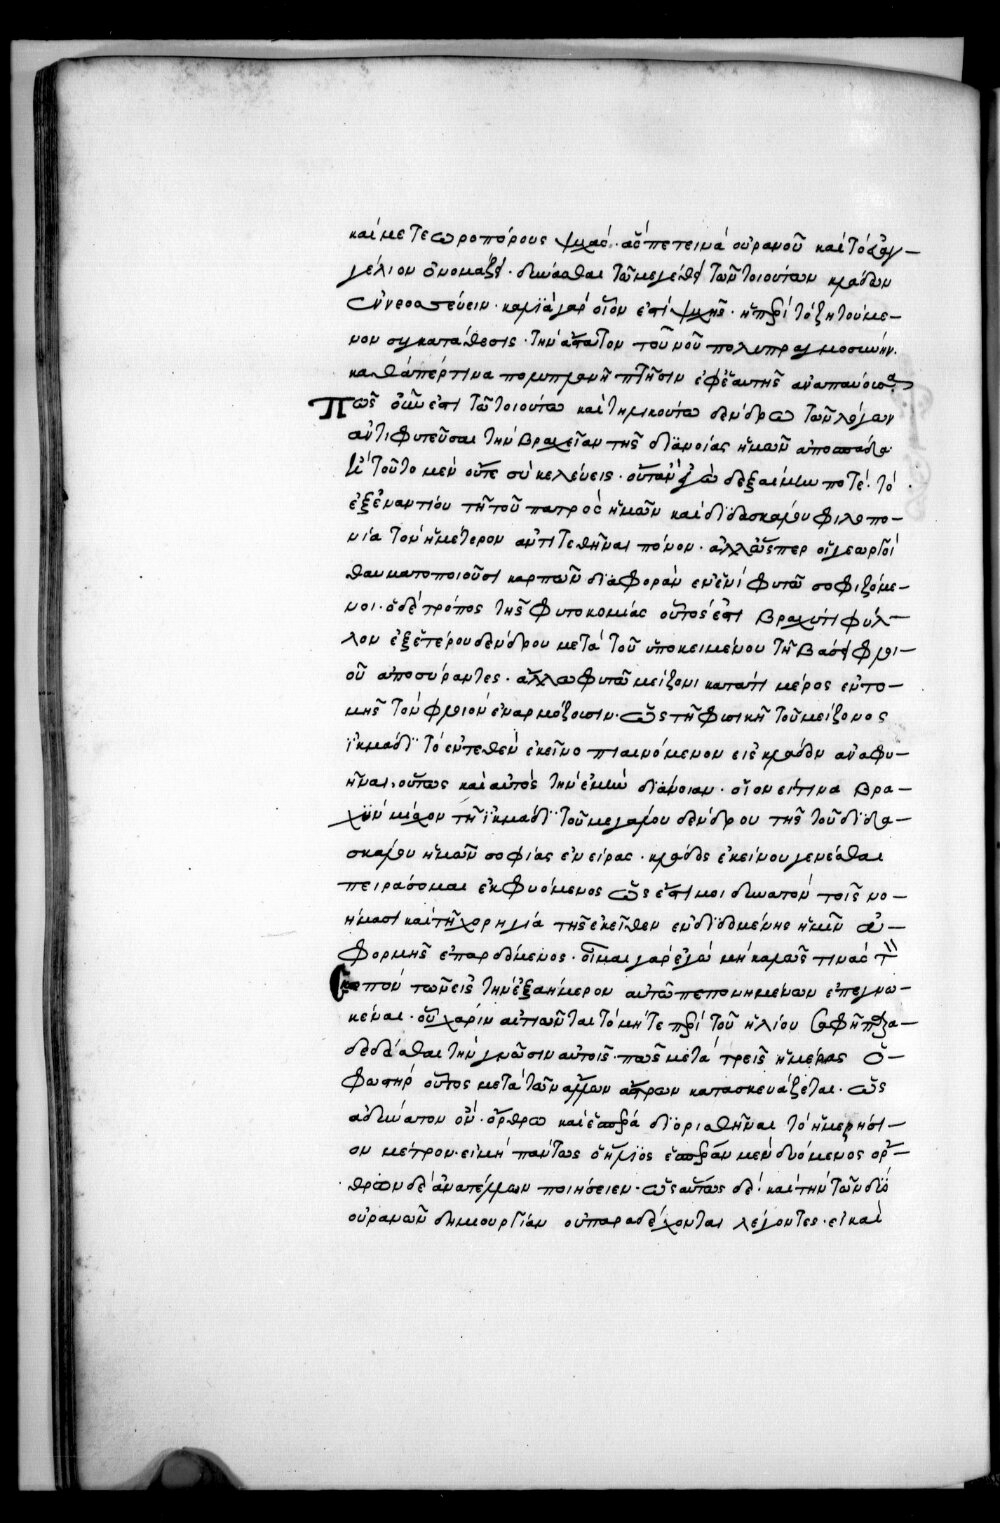 καὶ μετεωροπόρους ψυχάς· ἃς πετεινὰ οὐρανοῦ καὶ τὸ εὐαγ-
γέλιον ὀνομάζει· δύνασθαι τῶ μεγέθει τῶν τοιούτων κλάδων
ἐννεοσσεύειν· καλιὰ γάρ οἷον ἐστὶ ψυχῆς· ἡ περὶ τὸ ζητούμε-
νον συγκατάθεσις· τὴν ἄπαυστον τοῦ νοῦ πολυπραγμοσύνην
καθάπέρ τινα πολυπλανῆ πτῆσιν ἐφ' ἑαυτῆς ἀναπαύουσα
Πῶς οὖν ἐστὶ τῶ τοιούτω καὶ τηλικούτω δένδρω τῶν λόγων
ἀντιφυτεῦσαι τὴν βραχεῖαν τῆς διανοίας ἡμῶν
τοῦτο μὲν οὔτε σὺ κελεύεις· οὔτ' ἂν ἐγὼ δεξαίμην ποτέ· τὸ
ἐξεναντίου τῆ τοῦ πατρὸς ἡμῶν καὶ διδασκάλου φιλοπο-
νία τὸν ἡμέτερον ἀντιτεθῆναι πόνον· ἀλλ' ὥσπερ οἱ γεωργοὶ
θαυματοποιοῦσι καρπῶν διαφορὰν ἐν ἑνὶ φυτῶ σοφιζόμε-
νοι· ὁ δὲ τρόπος τῆς φυτοκομίας οὗτός ἐστι βραχύ τι φύλ-
λον ἐξ ἑτέρου δένδρου μετὰ τοῦ ὑποκειμένου τῆ βάσει φλοι-
οῦ ἀποσύραντες· ἄλλω φυτῶ μείζονι κατά τι μέρος ἐντο-
μῆς τὸν φλοιὸν ἐναρμόζουσιν· ὡς τῆ φυσικῆ τοῦ μείζονος
ἰκμάδι τὸ ἐντεθὲν ἐκεῖνο πιαινόμενον εἰς κλάδον ἀναφυ-
ῆναι· οὕτως καὶ αὐτὸς τὴν ἐμὴν διάνοιαν· οἷον εἴ τινα βρα-
χὺν μόσχον τῆ ἰκμάδι τοῦ μεγάλου δένδρου τῆς τοῦ διδα-
σκάλου ἡμῶν σοφίας ἐνείρας· κλάδος ἐκείνου γενέσθαι
πειράσομαι ἐκφυόμενος ὡς ἔστι μοι δυνατὸν τοῖς νο-
ήμασι καὶ τῆ χορηγία τῆς ἐκεῖθεν ἐνδιδομένης ἡμῖν ἀ-
φορμῆς ἐπαρδόμενος· οἶμαι γὰρ ἐγὼ μὴ καλῶς τινὰς τὸν
σκοπὸν τῶν εἰς τὴν ἑξαήμερον αὐτῶ πεπονημένων ἐπεγνω-
κέναι· οὗ χάριν αἰτιῶνται τὸ μήτε περὶ τοῦ ἡλίου σαφῆ
δεδόσθαι τὴν γνῶσιν αὐτοῖς· πῶς μετὰ τρεῖς ἡμέρας ὁ
φωστὴρ οὗτος μετὰ τῶν ἄλλων ἄστρων κατασκευάζεται· ὡς
ἀδύνατον ὂν· ὄρθρω καὶ ἑσπέρα διορισθῆναι τὸ ἡμερήσι-
ον μέτρον· εἰ μὴ πάντως ὁ ἥλιος ἑσπέραν μὲν δυόμενος ὄρ-
θρον δὲ ἀνατέλλων ποιήσειεν· ὡσαύτως δὲ· καὶ τὴν τῶν δύο
οὐρανῶν δημιουργίαν οὐ παραδέχονται λέγοντες· εἰ καὶ